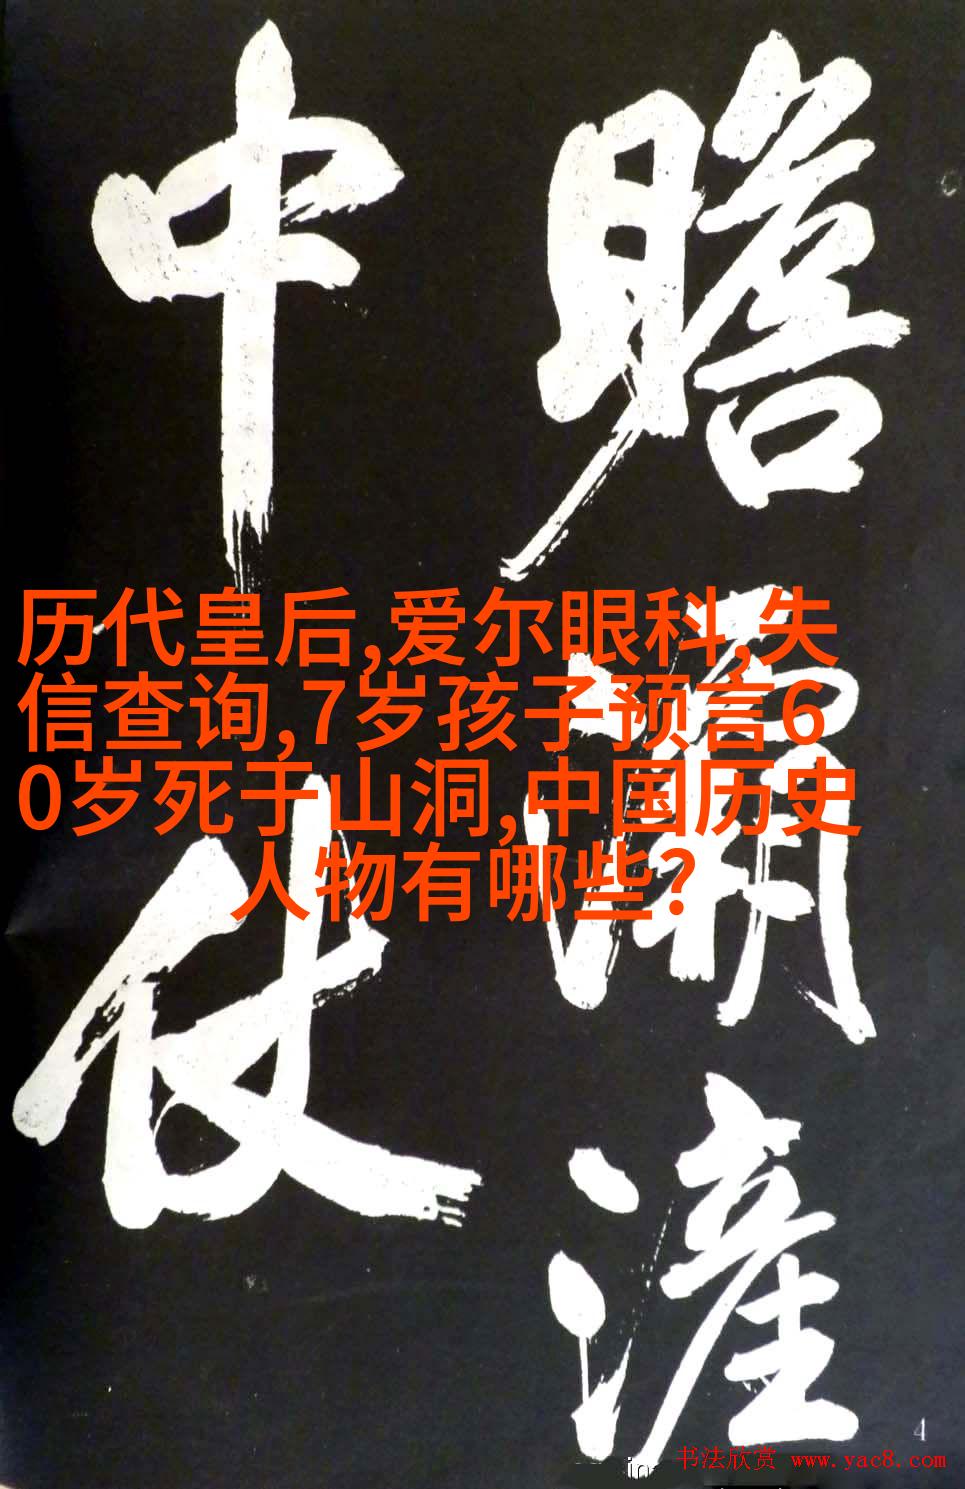 瞻灞滻
中仗
历代皇后,爱尔眼科,失
信查询,7岁孩子预言6
0岁死于山洞,中国历史
人物有哪些?
4
书法欣赏 www.yac8.com